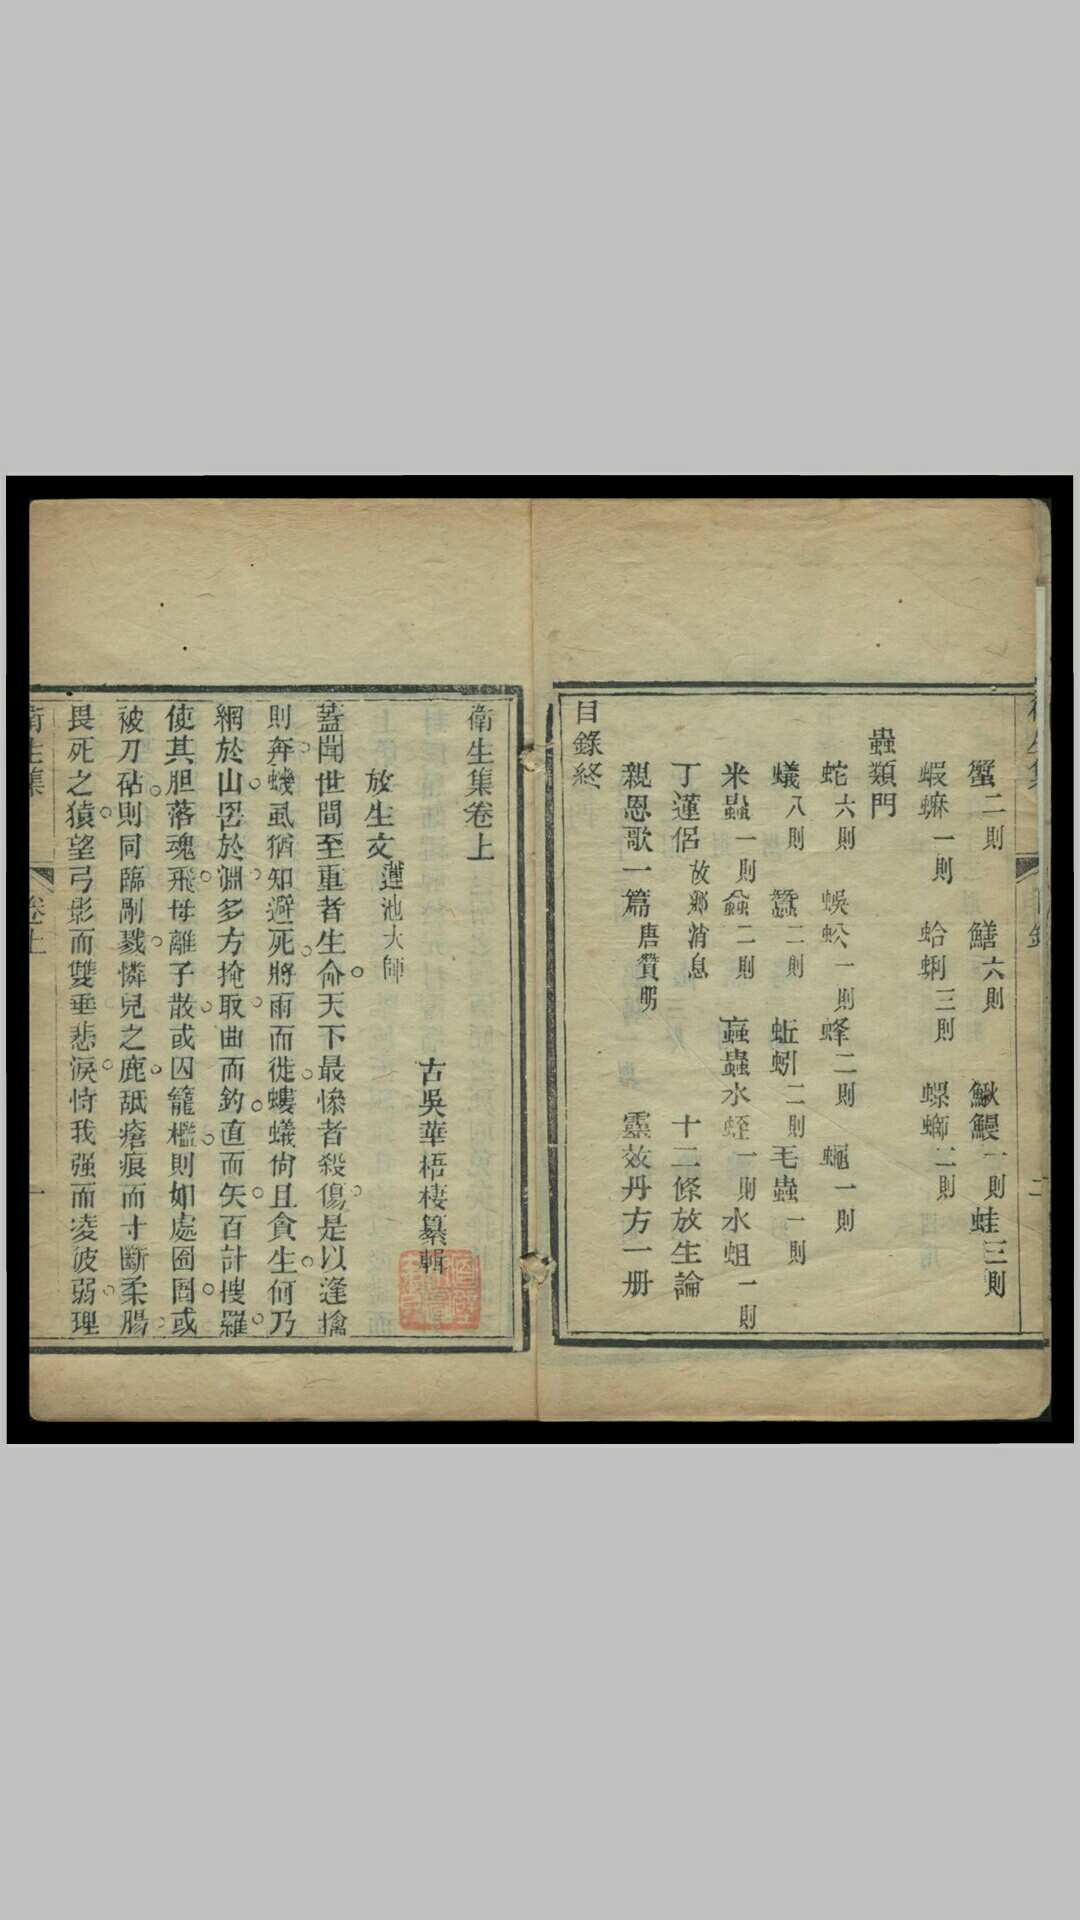 蟹二則 鱔六則 鰍鰻一則 蛙三則
蝦蟆一則 蛤蜊三則 螺螄二則
蟲類門
蛇六則 蜈蚣一則 蜂二則 蠅一則
蟻八則 蠶二則 蚯蚓二則 毛蟲一則
米蟲一則 蝨二則 蟲水蛭一則 水蛆一則
丁蓮侶故鄉消息 十二條放生論
親恩歌一篇唐贊勛 靈效丹方一册
目錄終
衛生集卷上
古吳華梧棲纂輯
放生文蓮池大師
蓋聞世間至重者生命天下最慘者殺傷是以逢擒
則奔蟣虱猶知避死將雨而徙螻蟻尙且貪生何乃
網於山罟於淵多方掩取曲而釣直而矢百計搜羅
使其胆落魂飛母離子散或囚籠檻則如處囹圄或
被刀砧則同臨剮戮憐兒之鹿舐瘡痕而寸斷柔腸
畏死之猿望弓影而雙垂悲淚恃我强而凌彼弱理
衛生集 卷上 一